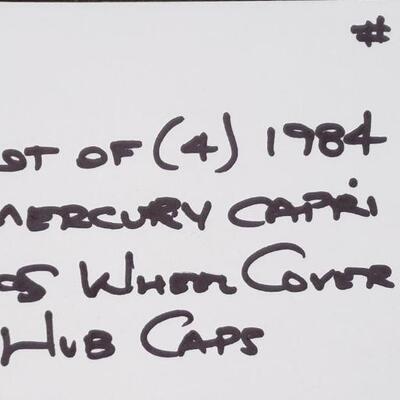 #
OT OF (4) 1984
MERCURY CAPRI
OS WHEEL COVER
HUB CAPS